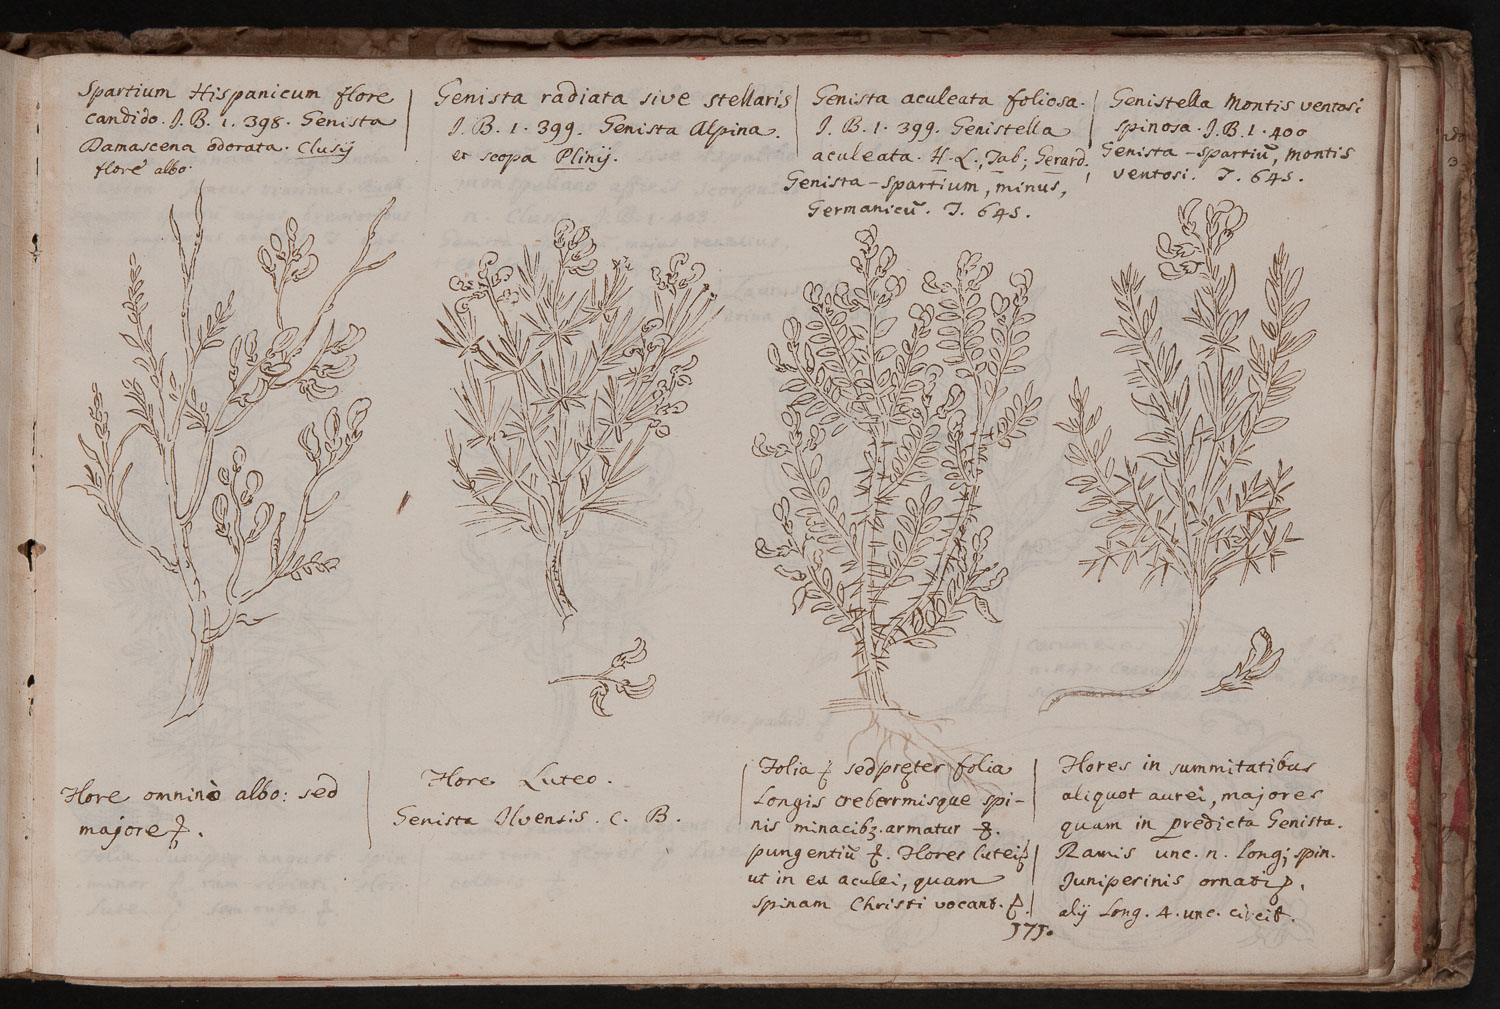 Spartium Hispanicum flore
candido. J. B. 1. 398. Genista
Damascena odorata. Clusij
flore albo.
Genista radiata sive stellaris
J. B. 1. 399. Genista Alpina.
et scopa Plinij.
Genista aculeata foliosa.
J. B. 1. 399. Genistella
aculeata. H. L., Tab; Gerard.
Genista-spartium, minus,
Germanicū. J. 645.
Genistella Montis ventosi
spinosa. J. B. 1. 400
Genista-spartiū, montis
ventosi. J. 645.
Flore omninò albo: sed
majore
Flore Luteo.
Genista Ilvensis. C. B.
Folia sed preter folia
Longis creberrmisque spi-
nis minacibz. armatur
pungentiū Flores lutei
ut in ea aculei, quam
spinam Christi vocant.
Flores in summitatibus
aliquot aurei, majores
quam in predicta Genista.
Ramis unc. n. Long; spin.
Juniperinis ornati
alij Long. 4. unc.
171.